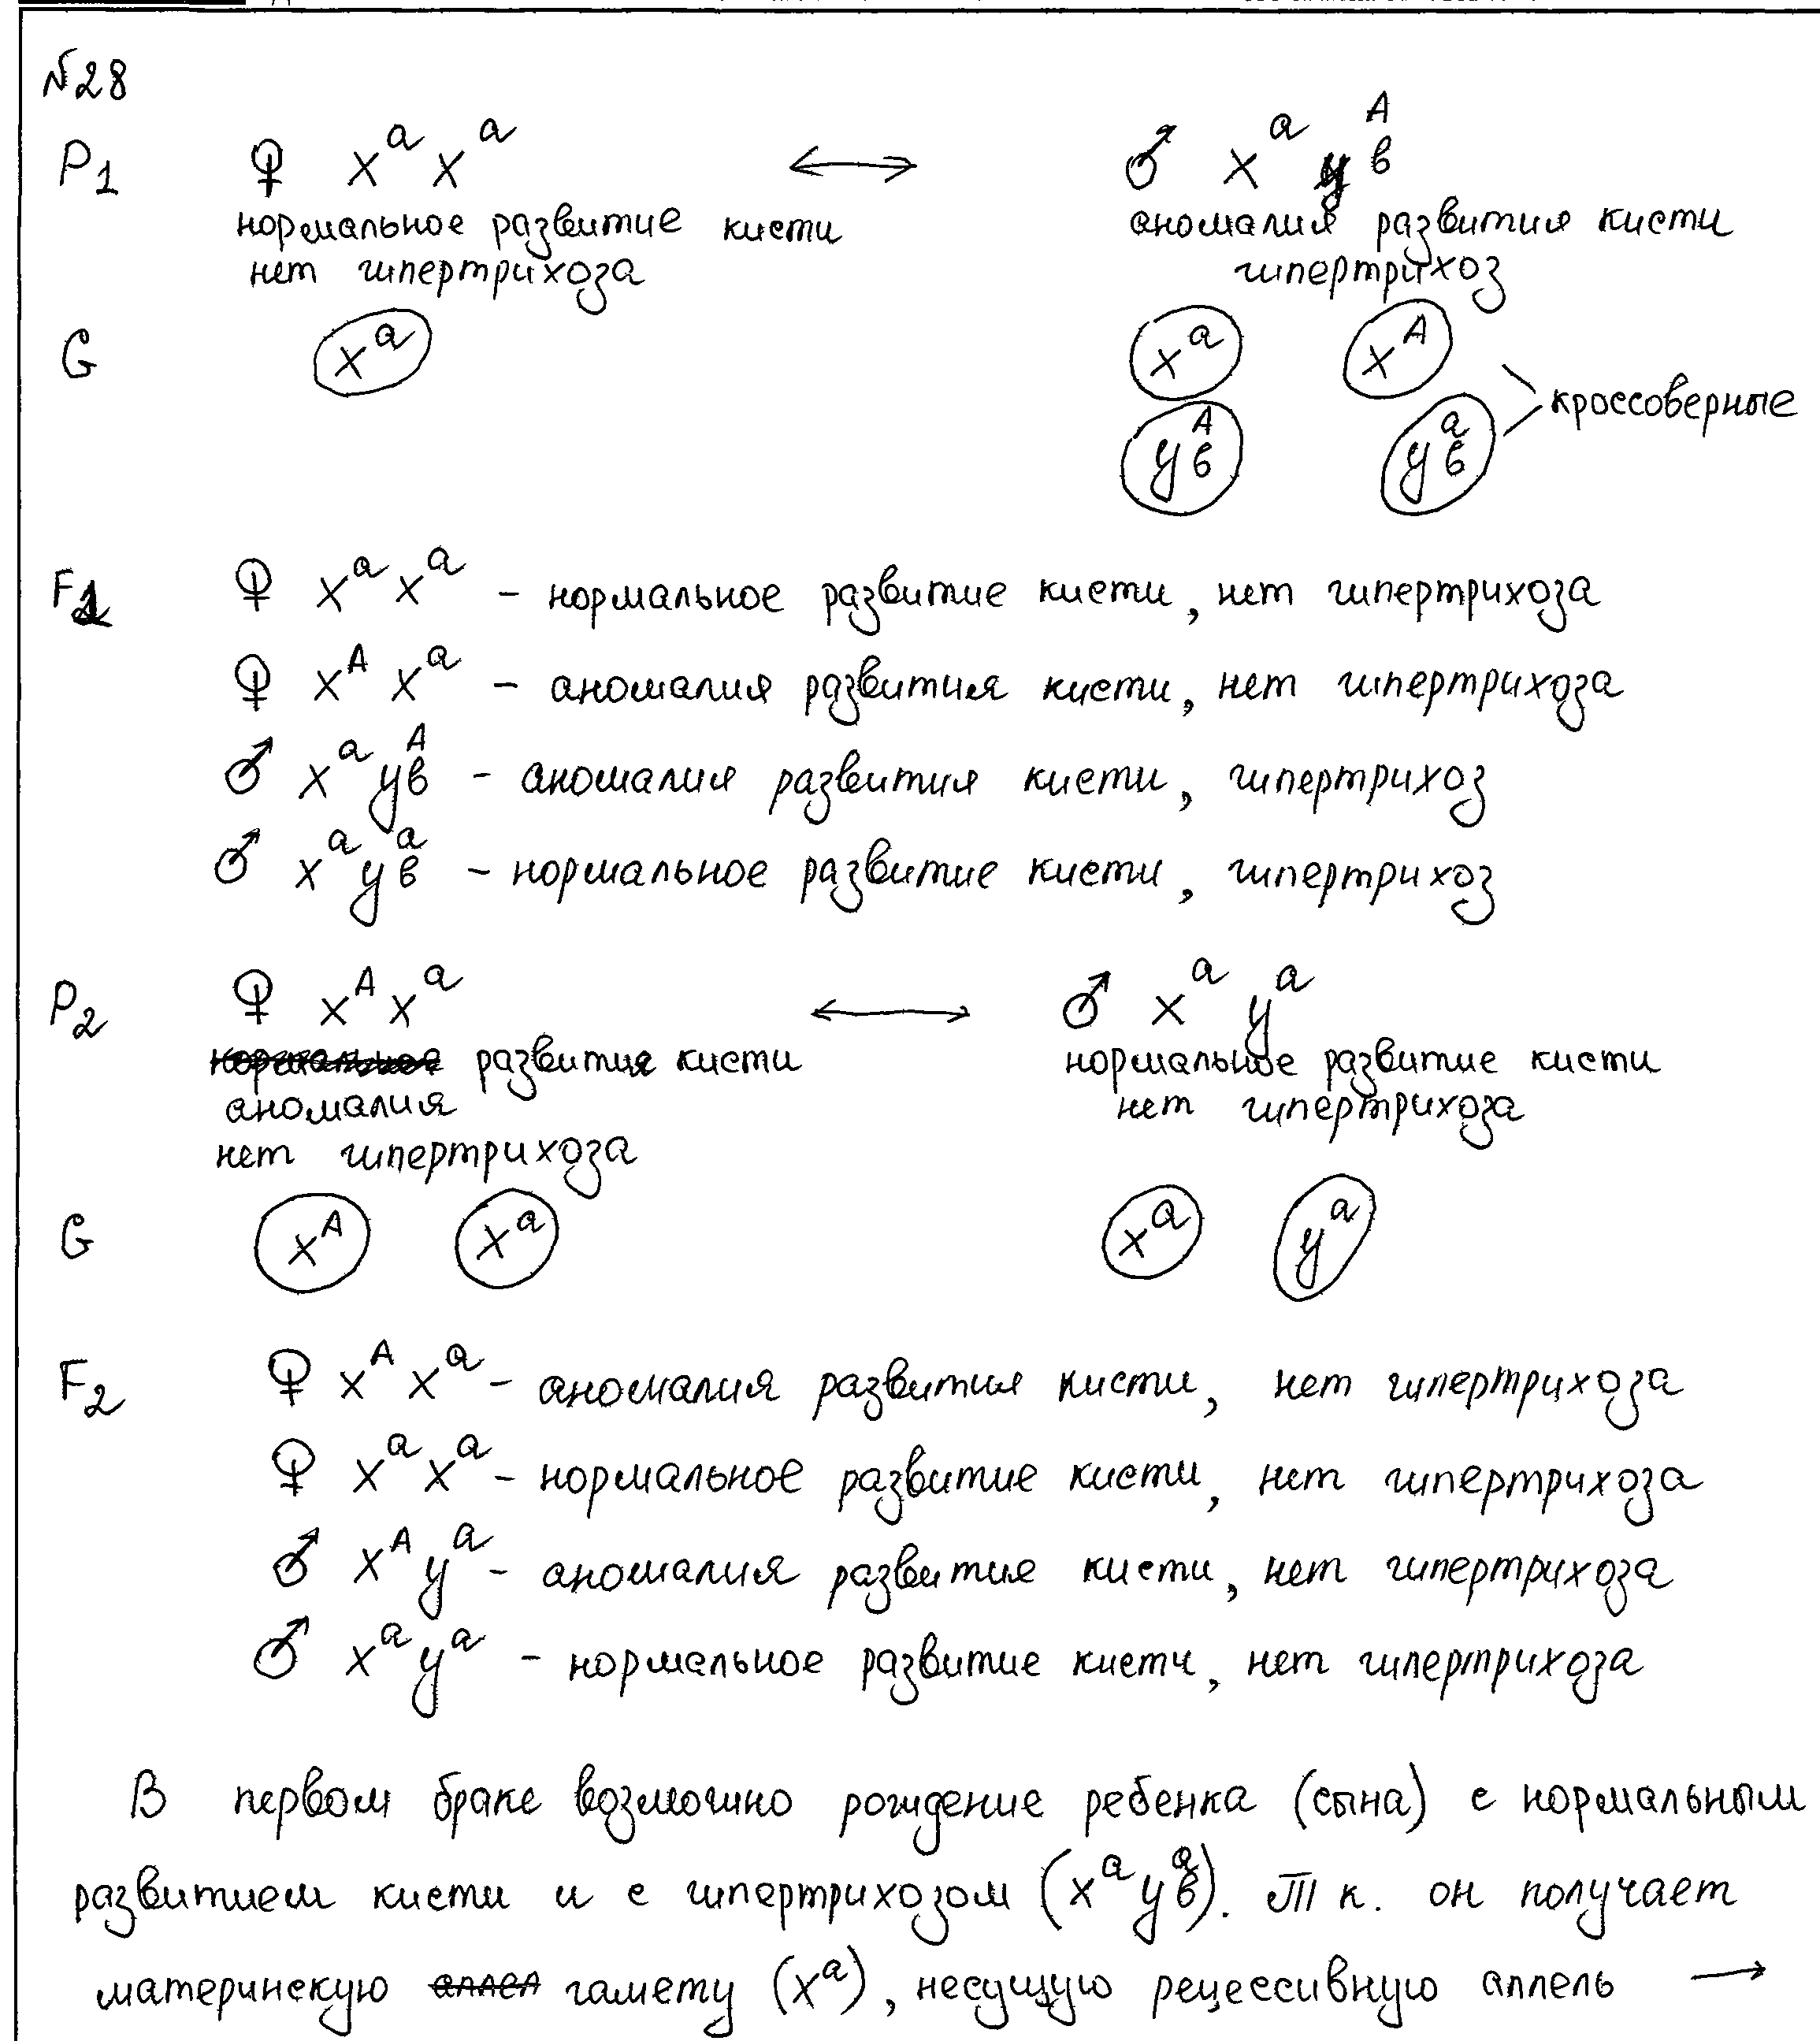 №28
P1 ♀ XᵃXᵃ ↔ ♂ Xᵃ yвᴬ
нормальное развитие кисти аномалия развития кисти
нет гипертрихоза гипертрихоз
G Xᵃ Xᵃ Xᴬ
yвᴬ yвᵃ кроссоверные
F1 ♀ XᵃXᵃ – нормальное развитие кисти, нет гипертрихоза
♀ XᴬXᵃ – аномалия развития кисти, нет гипертрихоза
♂ Xᵃyвᴬ – аномалия развития кисти, гипертрихоз
♂ Xᵃyвᵃ – нормальное развитие кисти, гипертрихоз
P2 ♀ XᴬXᵃ ↔ ♂ Xᵃ yᵃ
нормальное развития кисти нормальное развитие кисти
аномалия нет гипертрихоза
нет гипертрихоза
G Xᴬ Xᵃ Xᵃ yᵃ
F2 ♀ XᴬXᵃ – аномалия развития кисти, нет гипертрихоза
♀ XᵃXᵃ – нормальное развитие кисти, нет гипертрихоза
♂ Xᴬyᵃ – аномалия развитие кисти, нет гипертрихоза
♂ Xᵃyᵃ – нормальное развитие кисти, нет гипертрихоза
В первом браке возможно рождение ребенка (сына) с нормальным
развитием кисти и с гипертрихозом (Xᵃyвᵃ). Т к. он получает
материнскую аллел гамету (Xᵃ), несущую рецессивную аллель →